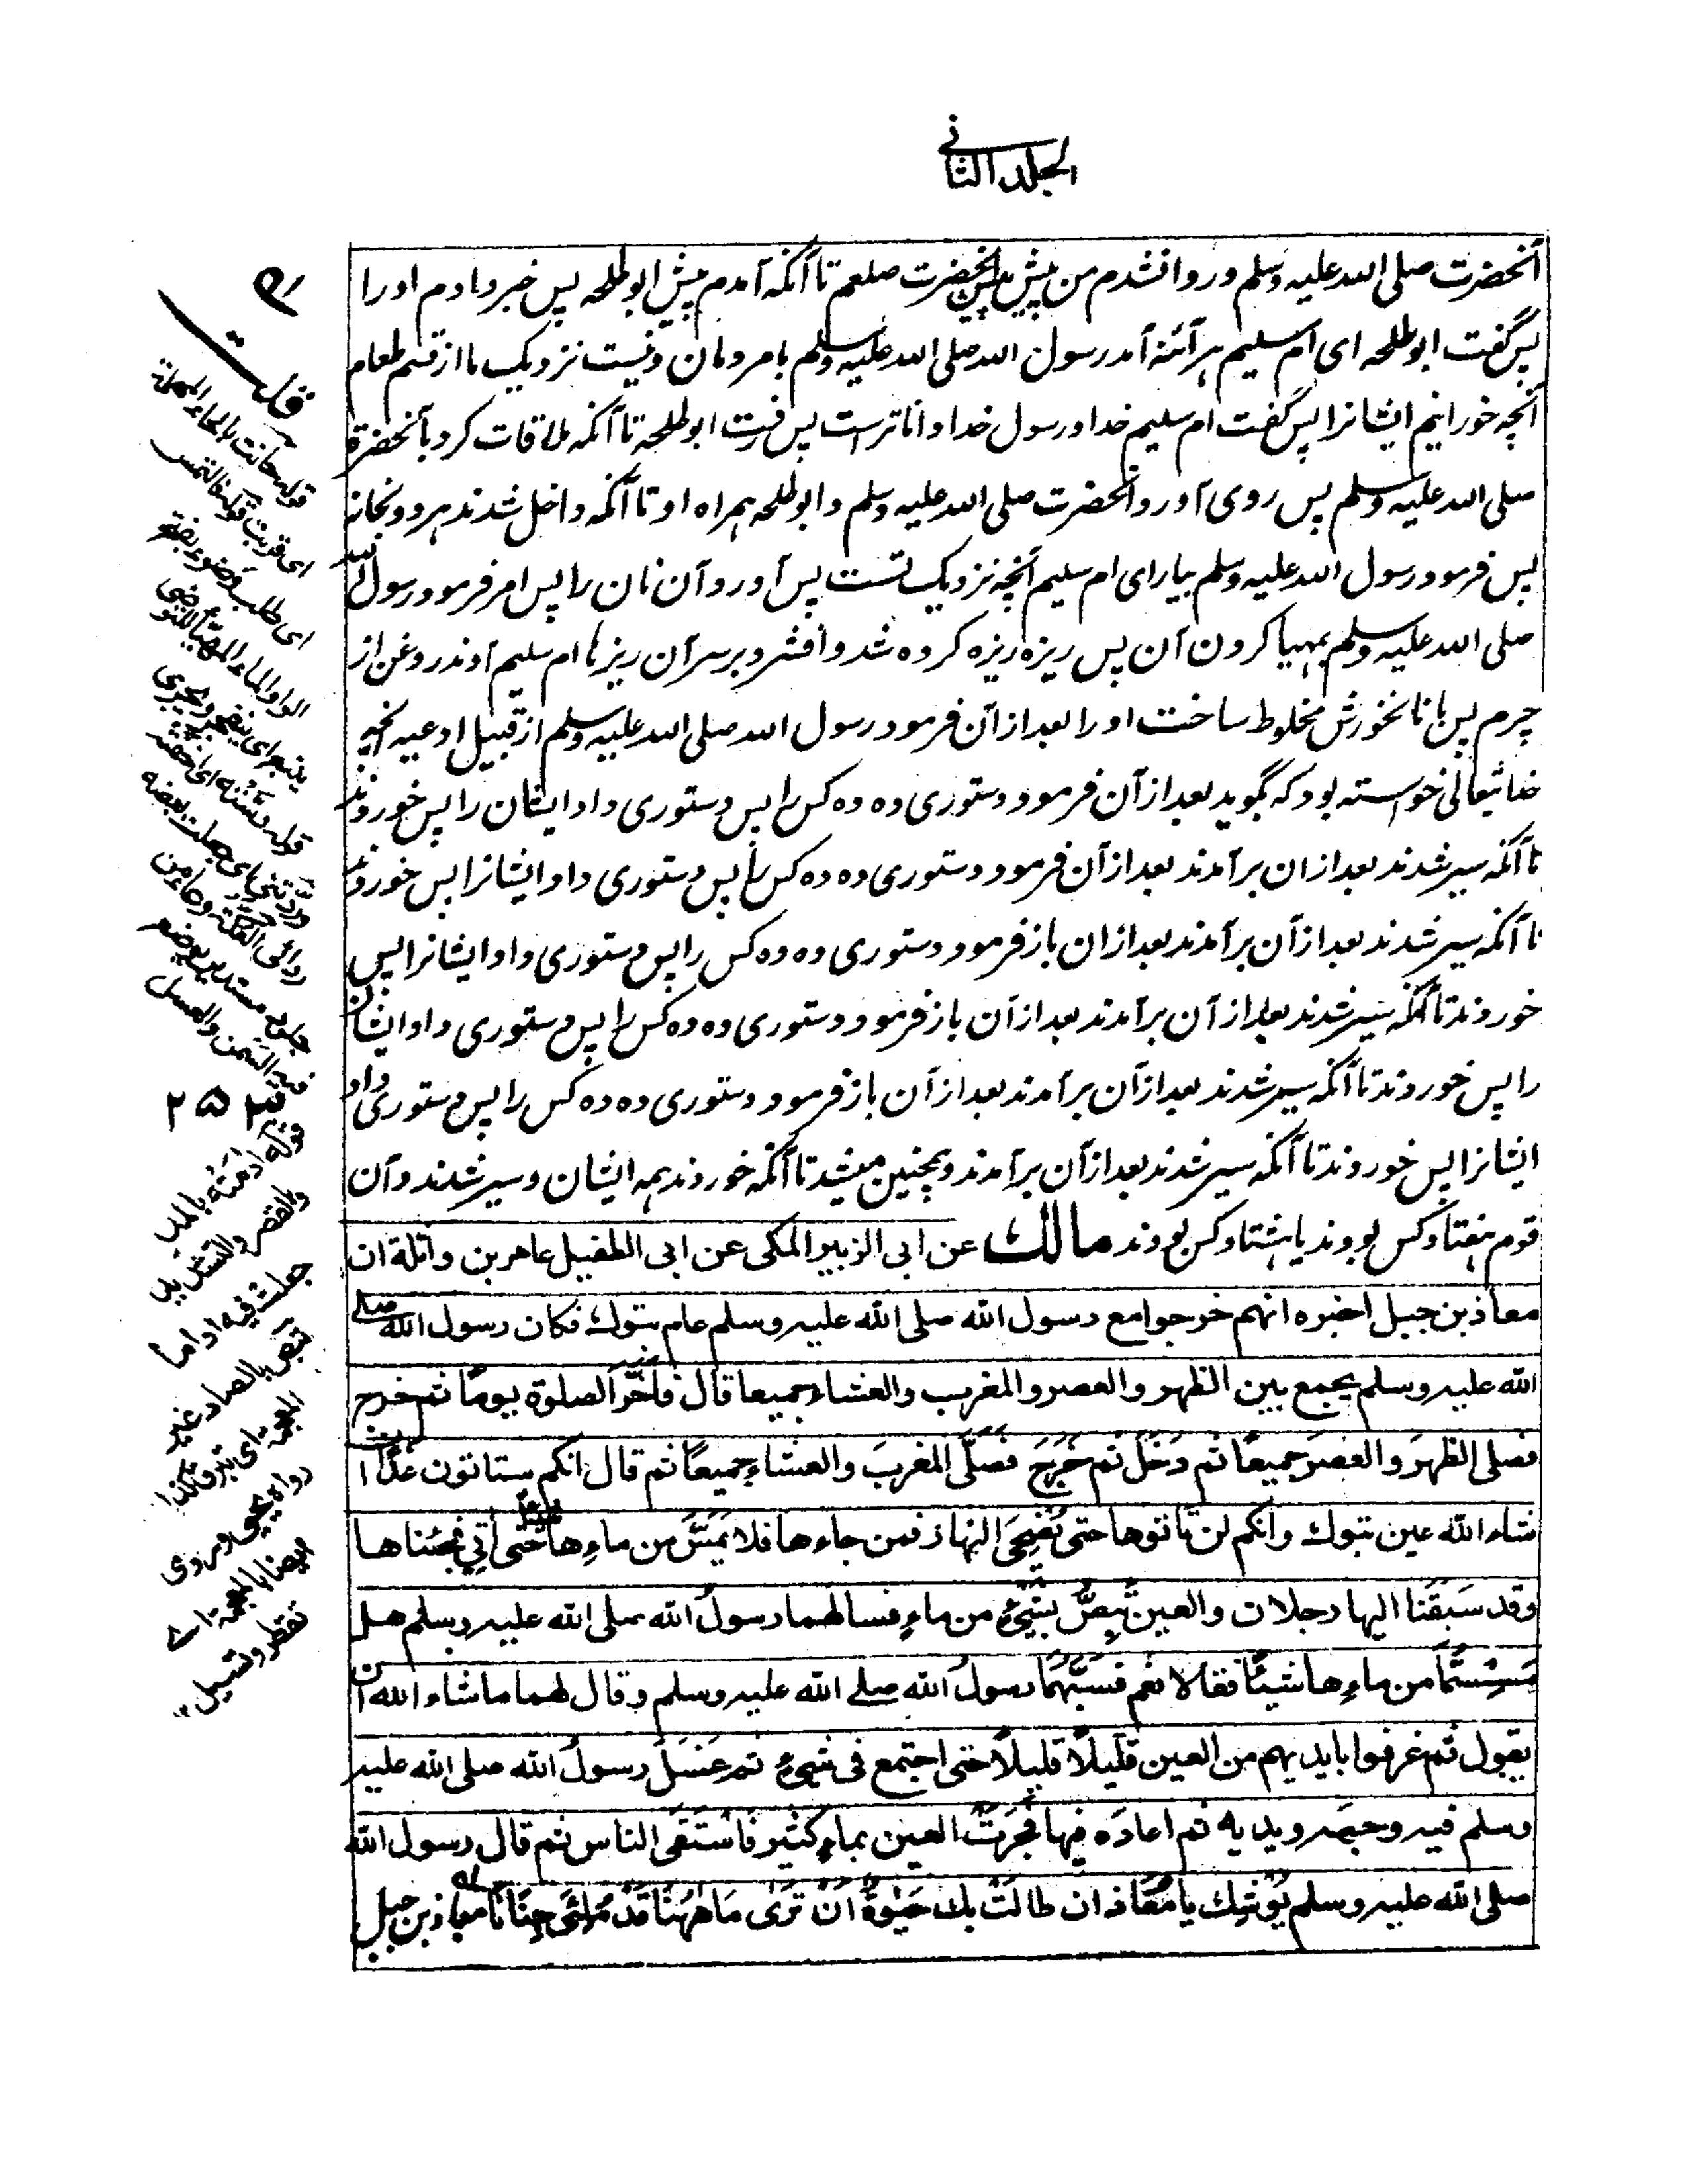 المجلد الثانی
آنحضرت صلی الله علیه وسلم و روانشدم من پیش پیش آنحضرت صلعم تا آنکه آمدم پیش ابو طلحه پس خبر دادم او را
پس گفت ابو طلحه ای ام سلیم هر آئنه آمد رسول الله صلی الله علیه وسلم با مردمان و نیست نزدیک ما از قسم طعام
آنچه خورانیم ایشانرا پس گفت ام سلیم خدا و رسول خدا داناترست پس رفت ابو طلحه تا آنکه ملاقات کرد بآنحضرة
صلی الله علیه وسلم پس روی آورد آنحضرت صلی الله علیه وسلم و ابو طلحه همراه او تا آنکه داخل شدند هر دو بخانه
پس فرمود رسول الله علیه وسلم بیار ای ام سلیم آنچه نزدیک تست پس آورد آن نان را پس امر فرمود رسول الله
صلی الله علیه وسلم بمهیا کردن آن پس ریزه ریزه کرده شد و افشرد بر سر آن ریزها ام سلیم آوند روغن از
چرم پس با نانخورش مخلوط ساخت او را بعد از آن فرمود رسول الله صلی الله علیه وسلم از قبیل ادعیه آنچه
خدایتعالی خواسته بود که بگوید بعد از آن فرمود دستوری ده ده کس را پس دستوری داد ایشان را پس خوردند
تا آنکه سیر شدند بعد ازان برآمدند بعد از آن فرمود دستوری ده ده کس را پس دستوری داد ایشانرا پس خوردند
تا آنکه سیر شدند بعد از آن برآمدند بعد ازان باز فرمود دستوری ده ده کس را پس دستوری داد ایشانرا پس
خوردند تا آنکه سیر شدند بعد از آن برآمدند بعد از آن باز فرمود دستوری ده ده کس را پس دستوری داد ایشان
را پس خوردند تا آنکه سیر شدند بعد از آن برآمدند بعد از آن باز فرمود دستوری ده ده کس را پس دستوری داد
ایشانرا پس خوردند تا آنکه سیر شدند بعد از آن برآمدند و همچنین میشد تا آنکه خوردند همه ایشان و سیر شدند و آن
قوم هفتاد کس بودند یا هشتاد کس بودند مالك عن ابی الزبیر المکی عن ابی الطفیل عامر بن واثلة ان
معاذ بن جبل اخبره انهم خرجوا مع رسول الله صلی الله علیه وسلم عام تبوك فکان رسول الله صلی
الله علیه وسلم یجمع بین الظهر والعصر والمغرب والعشاء جمیعا قال فَاَخَّرَ الصلوة یومًا ثم خرج
فصلی الظهرَ والعصرَ جمیعًا ثم دَخَلَ ثم خَرَجَ فَصَلَّی المغربَ والعشاءَ جمیعًا ثم قال انکم ستاتون غدًا ان
شاء الله عین تبوك وانکم لن تاتوها حتی یُضْحِیَ النهار فمن جاءها فلا یَمَسَّ من ماءِها شیئًا حتی آتِیَ فجئناها
وقد سَبَقَنا الیها رجلان والعین تَبِصُّ بشیءٍ من ماءٍ فسالهما رسولُ الله صلی الله علیه وسلم هل
مَسِسْتُمَا من ماءِها شیئًا فقالا نعم فَسَبَّهُمَا رسولُ الله صلی الله علیه وسلم وقال لهما ما شاء الله ان
یقول ثم غرفوا بایدیهم من العین قلیلًا قلیلًا حتی اجتمع فی شیءٍ ثم غَسَلَ رسولُ الله صلی الله علیه
وسلم فیه وجهَه ویدیه ثم اعادَه فیها فَجَرَتْ العین بماءٍ کثیرٍ فَاسْتَقَی الناس ثم قال رسول الله
صلی الله علیه وسلم یُوشِك یا مُعَاذ ان طالَتْ بك حَیٰوةٌ اَنْ تَرٰی مَا هٰهُنَا قَدْ مُلِئَی جِنَانًا معاذ بن جبل
قلت
قوله حانت بالحاء المهملة
ای قربت قوله فالتمس
ای طلب وضوء بفتح
الواو الماء المهیأ للتوضی
ینبع ای ینفجر ویجری
ردائی العکة وعاء من
جلود مستدیر یوضع
فیه السمن والعسل
۲۵۳
قوله ادمته بالمد
والقصر والتشدید
جعلت فیه اداما
تبص بالصاد غیر
المعجمة ای تبرق هکذا
رواه یحیی وروی
ایضا بالمعجمة ای
تقطر وتسیل ۱۲